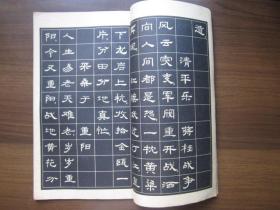 遁
清平乐 蒋桂战争
风云突变军阀重开战洒
向人间都是怨一枕黄粱
再现
下龙岩上杭收拾金瓯一
片分田分地真忙
采桑子 重阳
人生易老天难老岁岁重
阳今又重阳战地黄花分